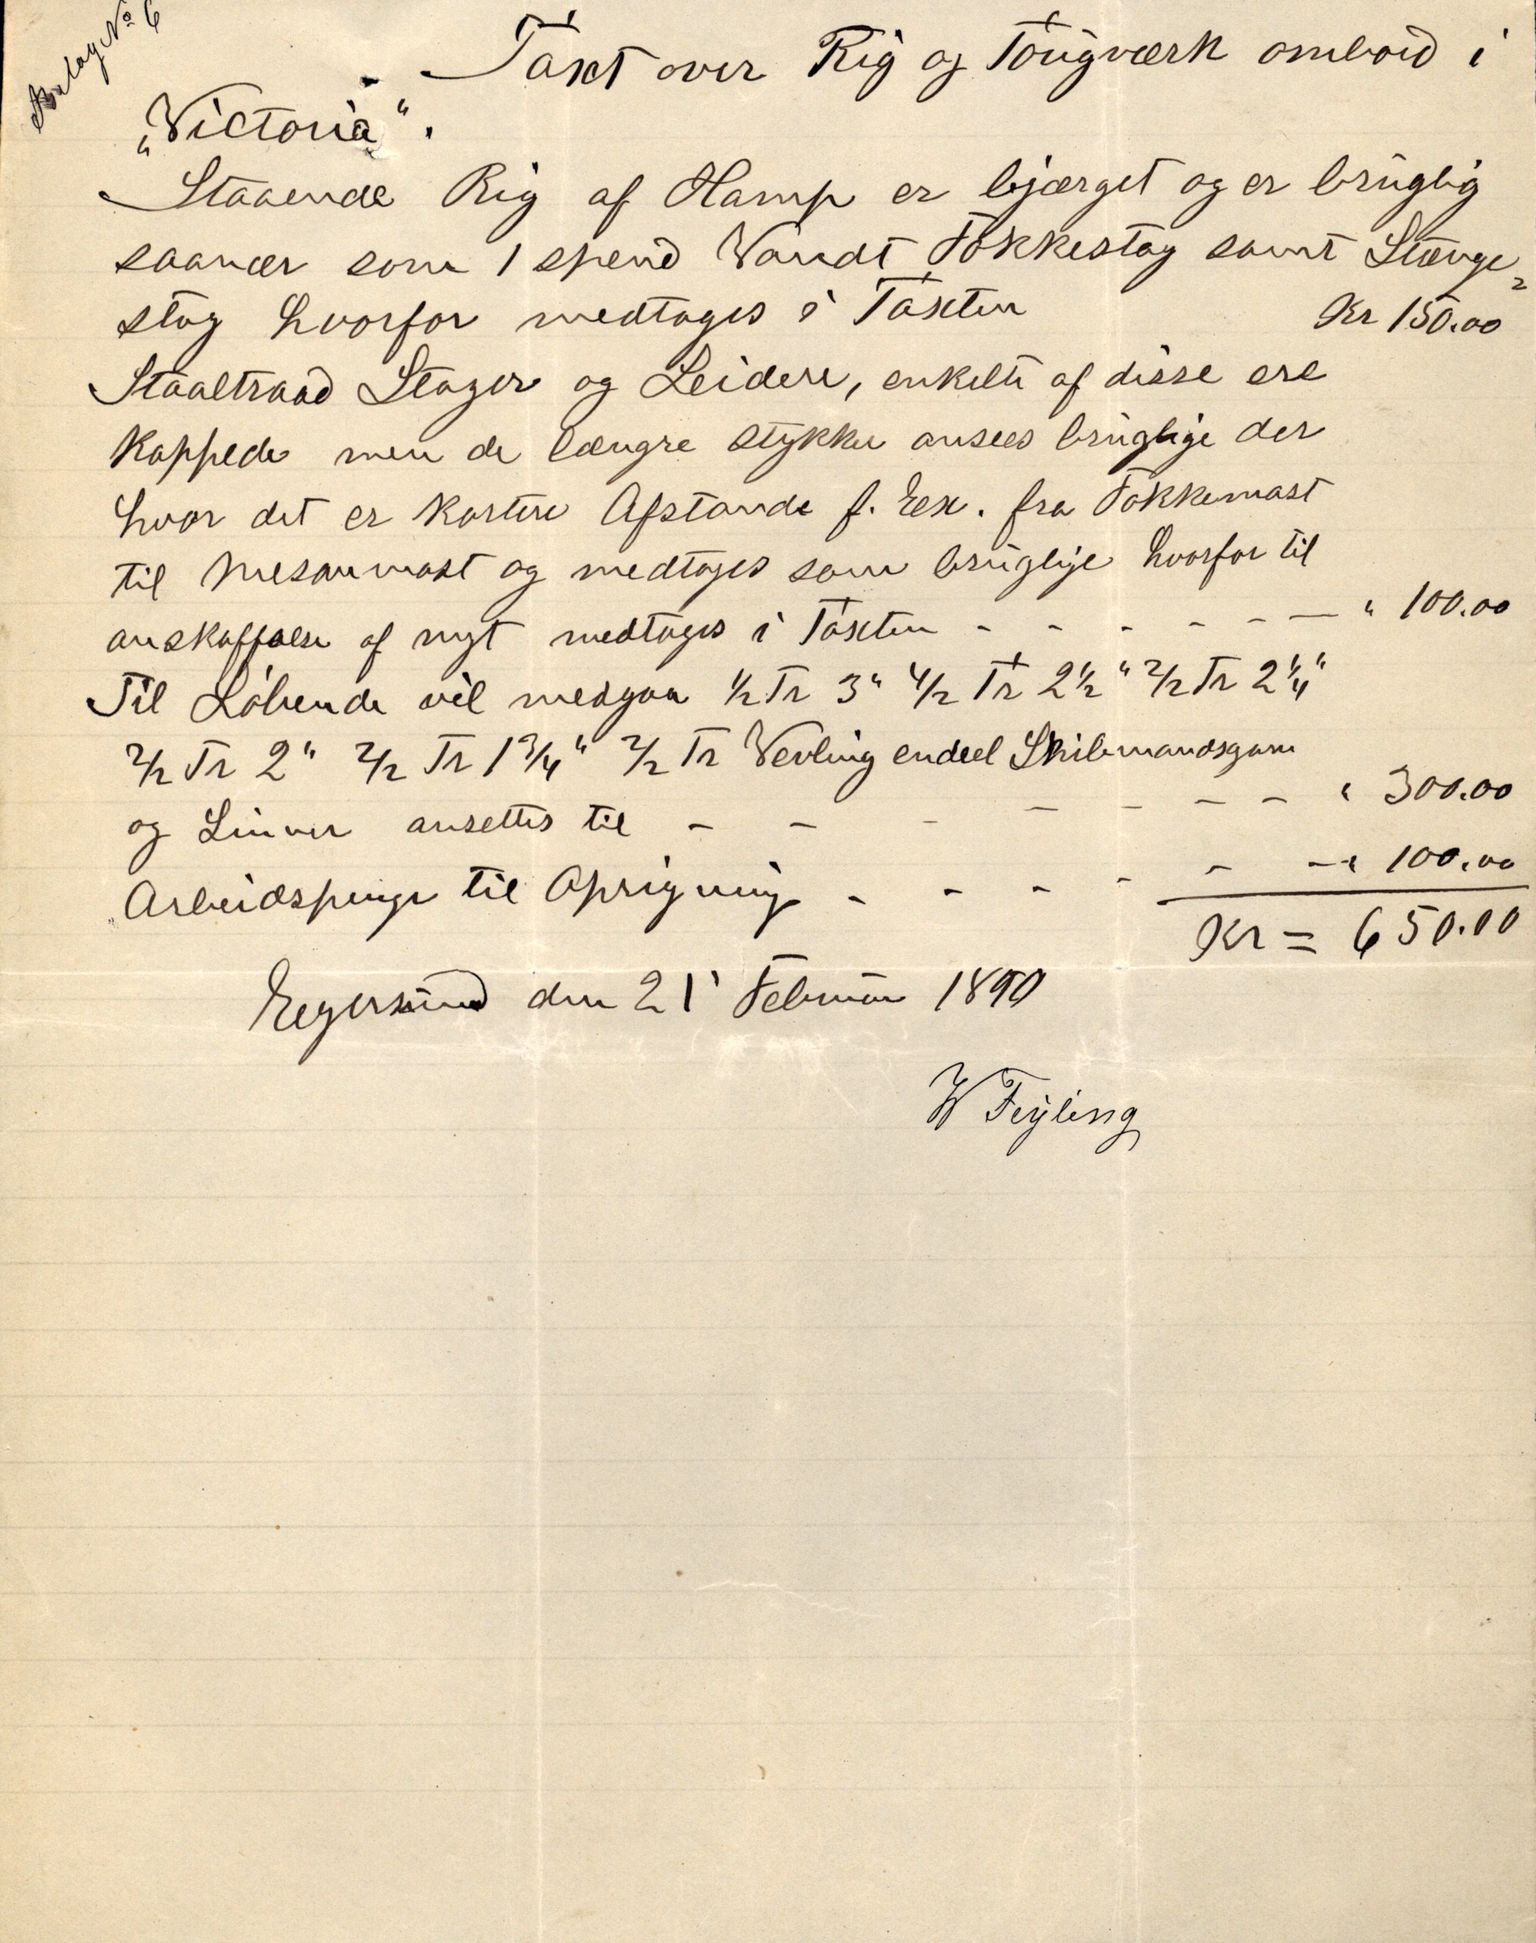 Bilag No 6
Taxt over Rig og Tougværk ombord i
„Victoria".
Staaende Rig af Hamp er bjærget og er bruglig
saanær som 1 spend Vandt Fokkestag samt Stænge-
stag hvorfor medtages i Taxten Kr 150.00
Staaltraad Stager og Leidere, enkelte af disse ere
kappede men de længre stykker ansees bruglige der
hvor det er kortere Afstande f. Ex. fra Fokkemast
til Mesanmast og medtages som bruglige hvorfor til
anskaffelse af nyt medtages i Taxten - - - - - — " 100.00
Til Løbende vil medgaa 1/2 Tr 3" 4/2 Tr 2 1/2" 2/2 Tr 2 1/4"
2/2 Tr 2" 2/2 Tr 1 3/4" 2/2 Tr Vevling endeel Skibmandsgarn
og Linner ansettes til - - - - - - - " 300.00
Arbeidspenge til Oprigning - - - - - - " 100.00
Kr = 650.00
Egersund den 21' Februar 1890
W Feyling